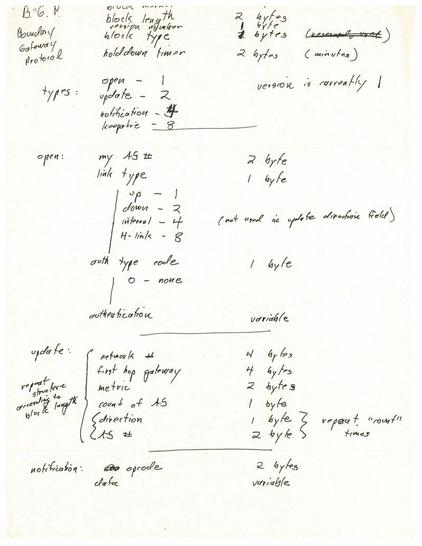 B.G.P block marker
block length 2 bytes
version number 1 byte
Boundary block type 1 bytes
Gateway
Protocol holddown timer 2 bytes (minutes)
types: open - 1 version is currently 1
update - 2
notification - 4
keepalive - 8
open: my AS # 2 byte
link type 1 byte
up - 1
down - 2
internal - 4 (not used in update direction field)
H-link - 8
auth type code 1 byte
0 - none
authentication variable
update: network # 4 bytes
first hop gateway 4 bytes
repeat metric 2 bytes
structure
according to count of AS 1 byte
block length direction 1 byte repeat "count"
AS # 2 byte times
notification: opcode 2 bytes
data variable